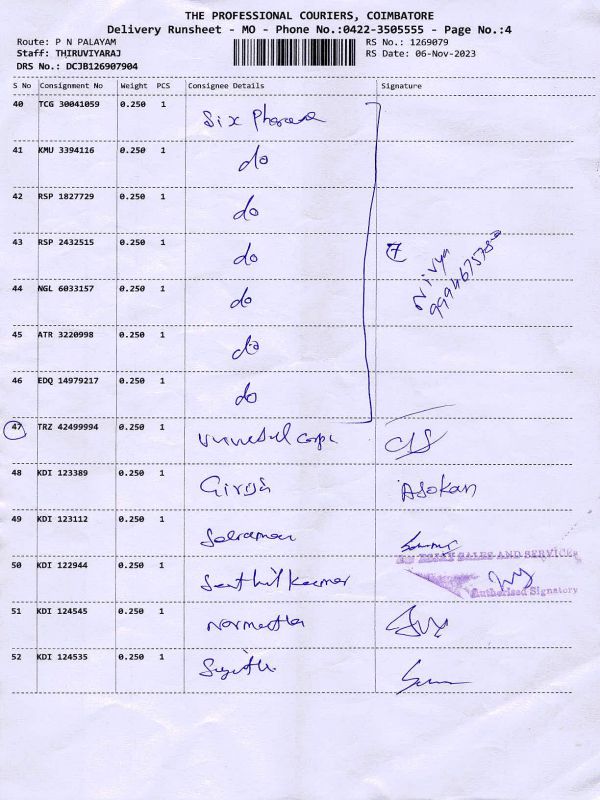 THE PROFESSIONAL COURIERS, COIMBATORE
Delivery Runsheet - MO - Phone No.:0422-3505555 - Page No.:4
Route: P N PALAYAM RS No.: 1269079
Staff: THIRUVIYARAJ RS Date: 06-Nov-2023
DRS No.: DCJB126907904
S No Consignment No Weight PCS Consignee Details Signature
40 TCG 30041059 0.250 1 Six
41 KMU 3394116 0.250 1 do
42 RSP 1827729 0.250 1 do
43 RSP 2432515 0.250 1 do 7
44 NGL 6033157 0.250 1 do
45 ATR 3220998 0.250 1 do
46 EDQ 14979217 0.250 1 do
47 TRZ 42499994 0.250 1
48 KDI 123389 0.250 1 Asokan
49 KDI 123112 0.250 1
SALES AND SERVICES
50 KDI 122944 0.250 1 Senthil Kumar
Authorised Signatory
51 KDI 124545 0.250 1
52 KDI 124535 0.250 1